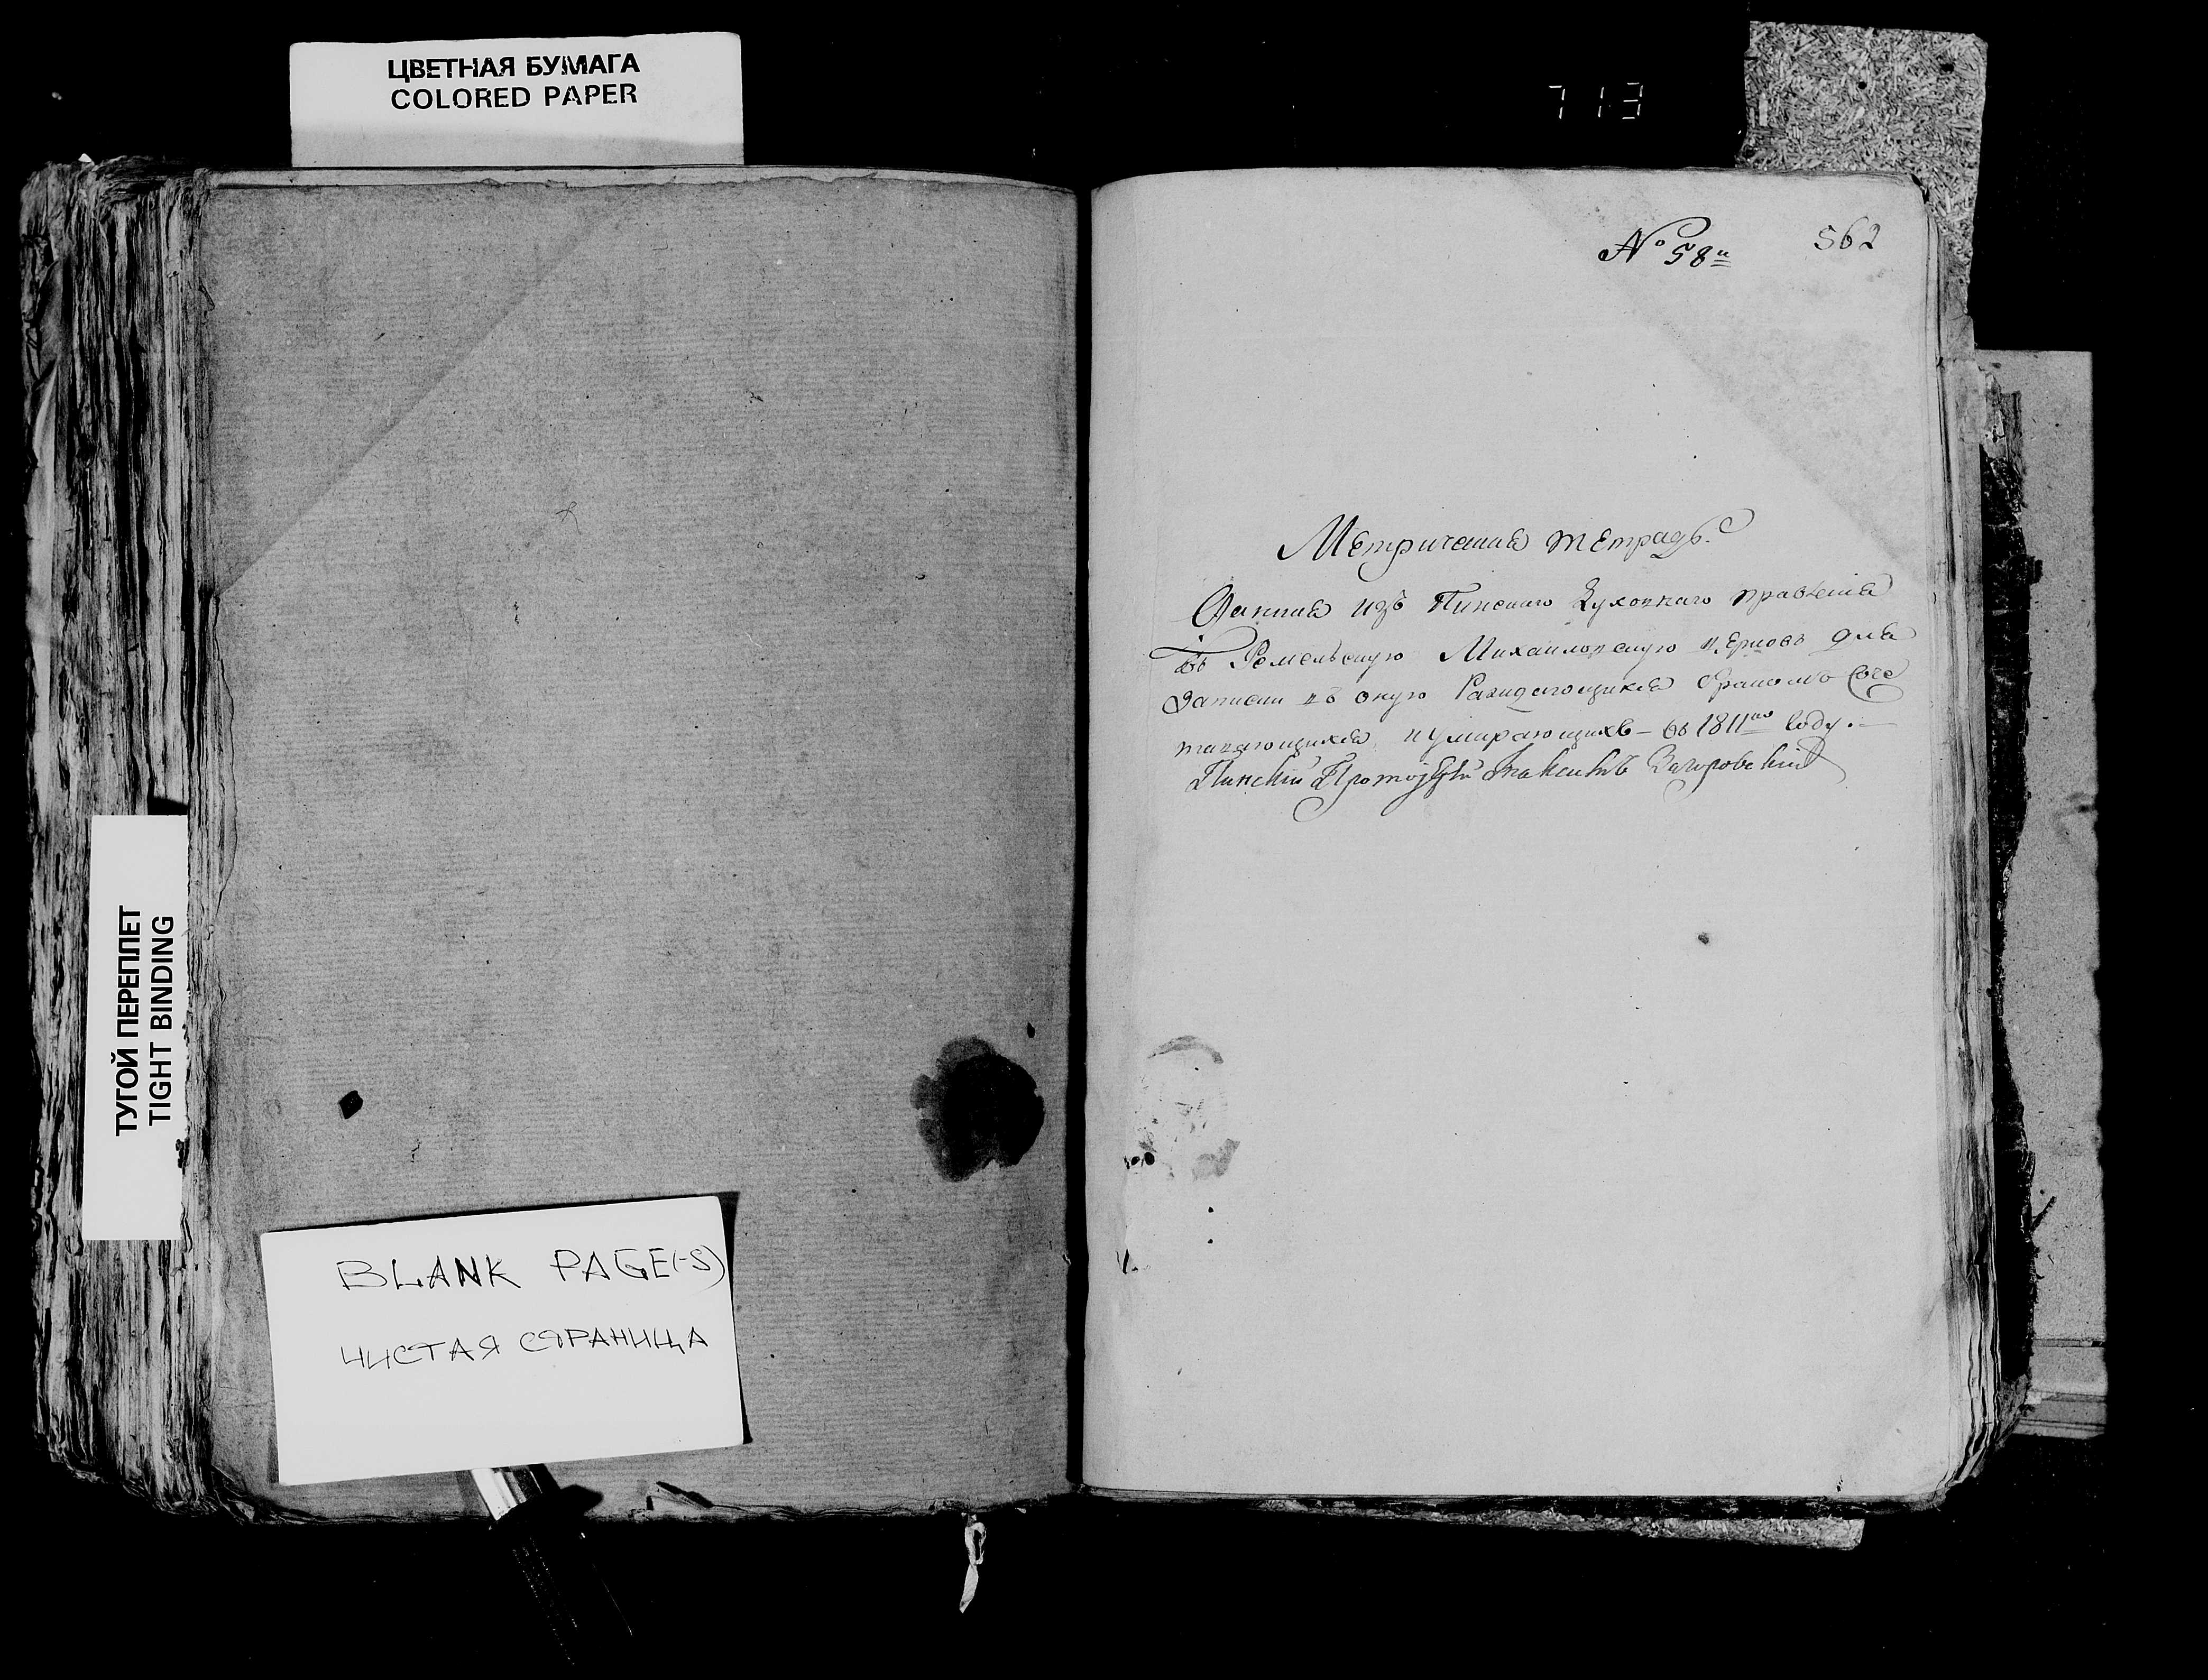 ЦВЕТНАЯ БУМАГА
COLORED PAPER
713
№ 58й
562
Метричная тетрадь.
Данная изъ Пинскаго Духовнаго правленія
въ Ремельскую Михайловскую церковь для
записки въ оную Раждающихся бракомъ Соче
тающихся и умирающихъ – въ 1811мъ Году. –
Пинскій Протоіерей
ТУГОЙ ПЕРЕПЛЕТ
TIGHT BINDING
BLANK PAGE(-S)
ЧИСТАЯ СТРАНИЦА